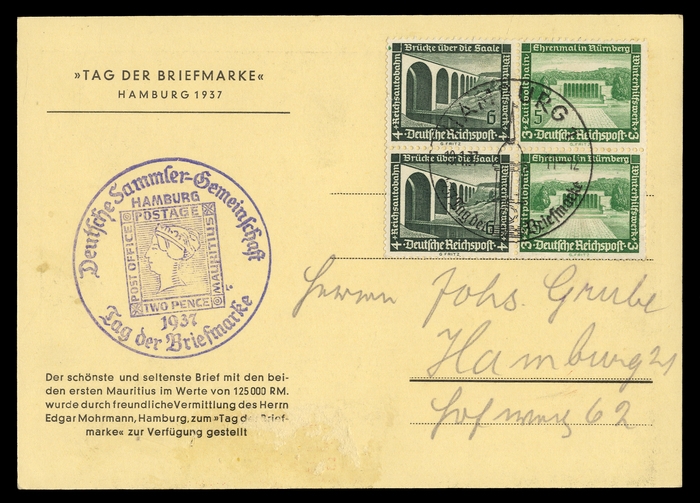 »TAG DER BRIEFMARKE«
HAMBURG 1937
Deutsche Sammler-Gemeinschaft
HAMBURG
POSTAGE
POST OFFICE
MAURITIUS
TWO PENCE
1937
Tag der Briefmarke
Der schönste und seltenste Brief mit den bei-
den ersten Mauritius im Werte von 125000 RM.
wurde durch freundliche Vermittlung des Herrn
Edgar Mohrmann, Hamburg, zum »Tag der Brief-
marke« zur Verfügung gestellt
Brücke über die Saale
Reichsautobahn
Winterhilfswerk
4 Deutsche Reichspost 4
G.FRITZ
Ehrenmal in Nürnberg
Luitpoldhain
Winterhilfswerk
3 Deutsche Reichspost 3
G.FRITZ
Brücke über die Saale
Reichsautobahn
Winterhilfswerk
4 Deutsche Reichspost 4
G.FRITZ
Ehrenmal in Nürnberg
Luitpoldhain
Winterhilfswerk
3 Deutsche Reichspost 3
G.FRITZ
HAMBURG
Tag der Briefmarke
Herrn Johs. Grube
Hamburg 21
62